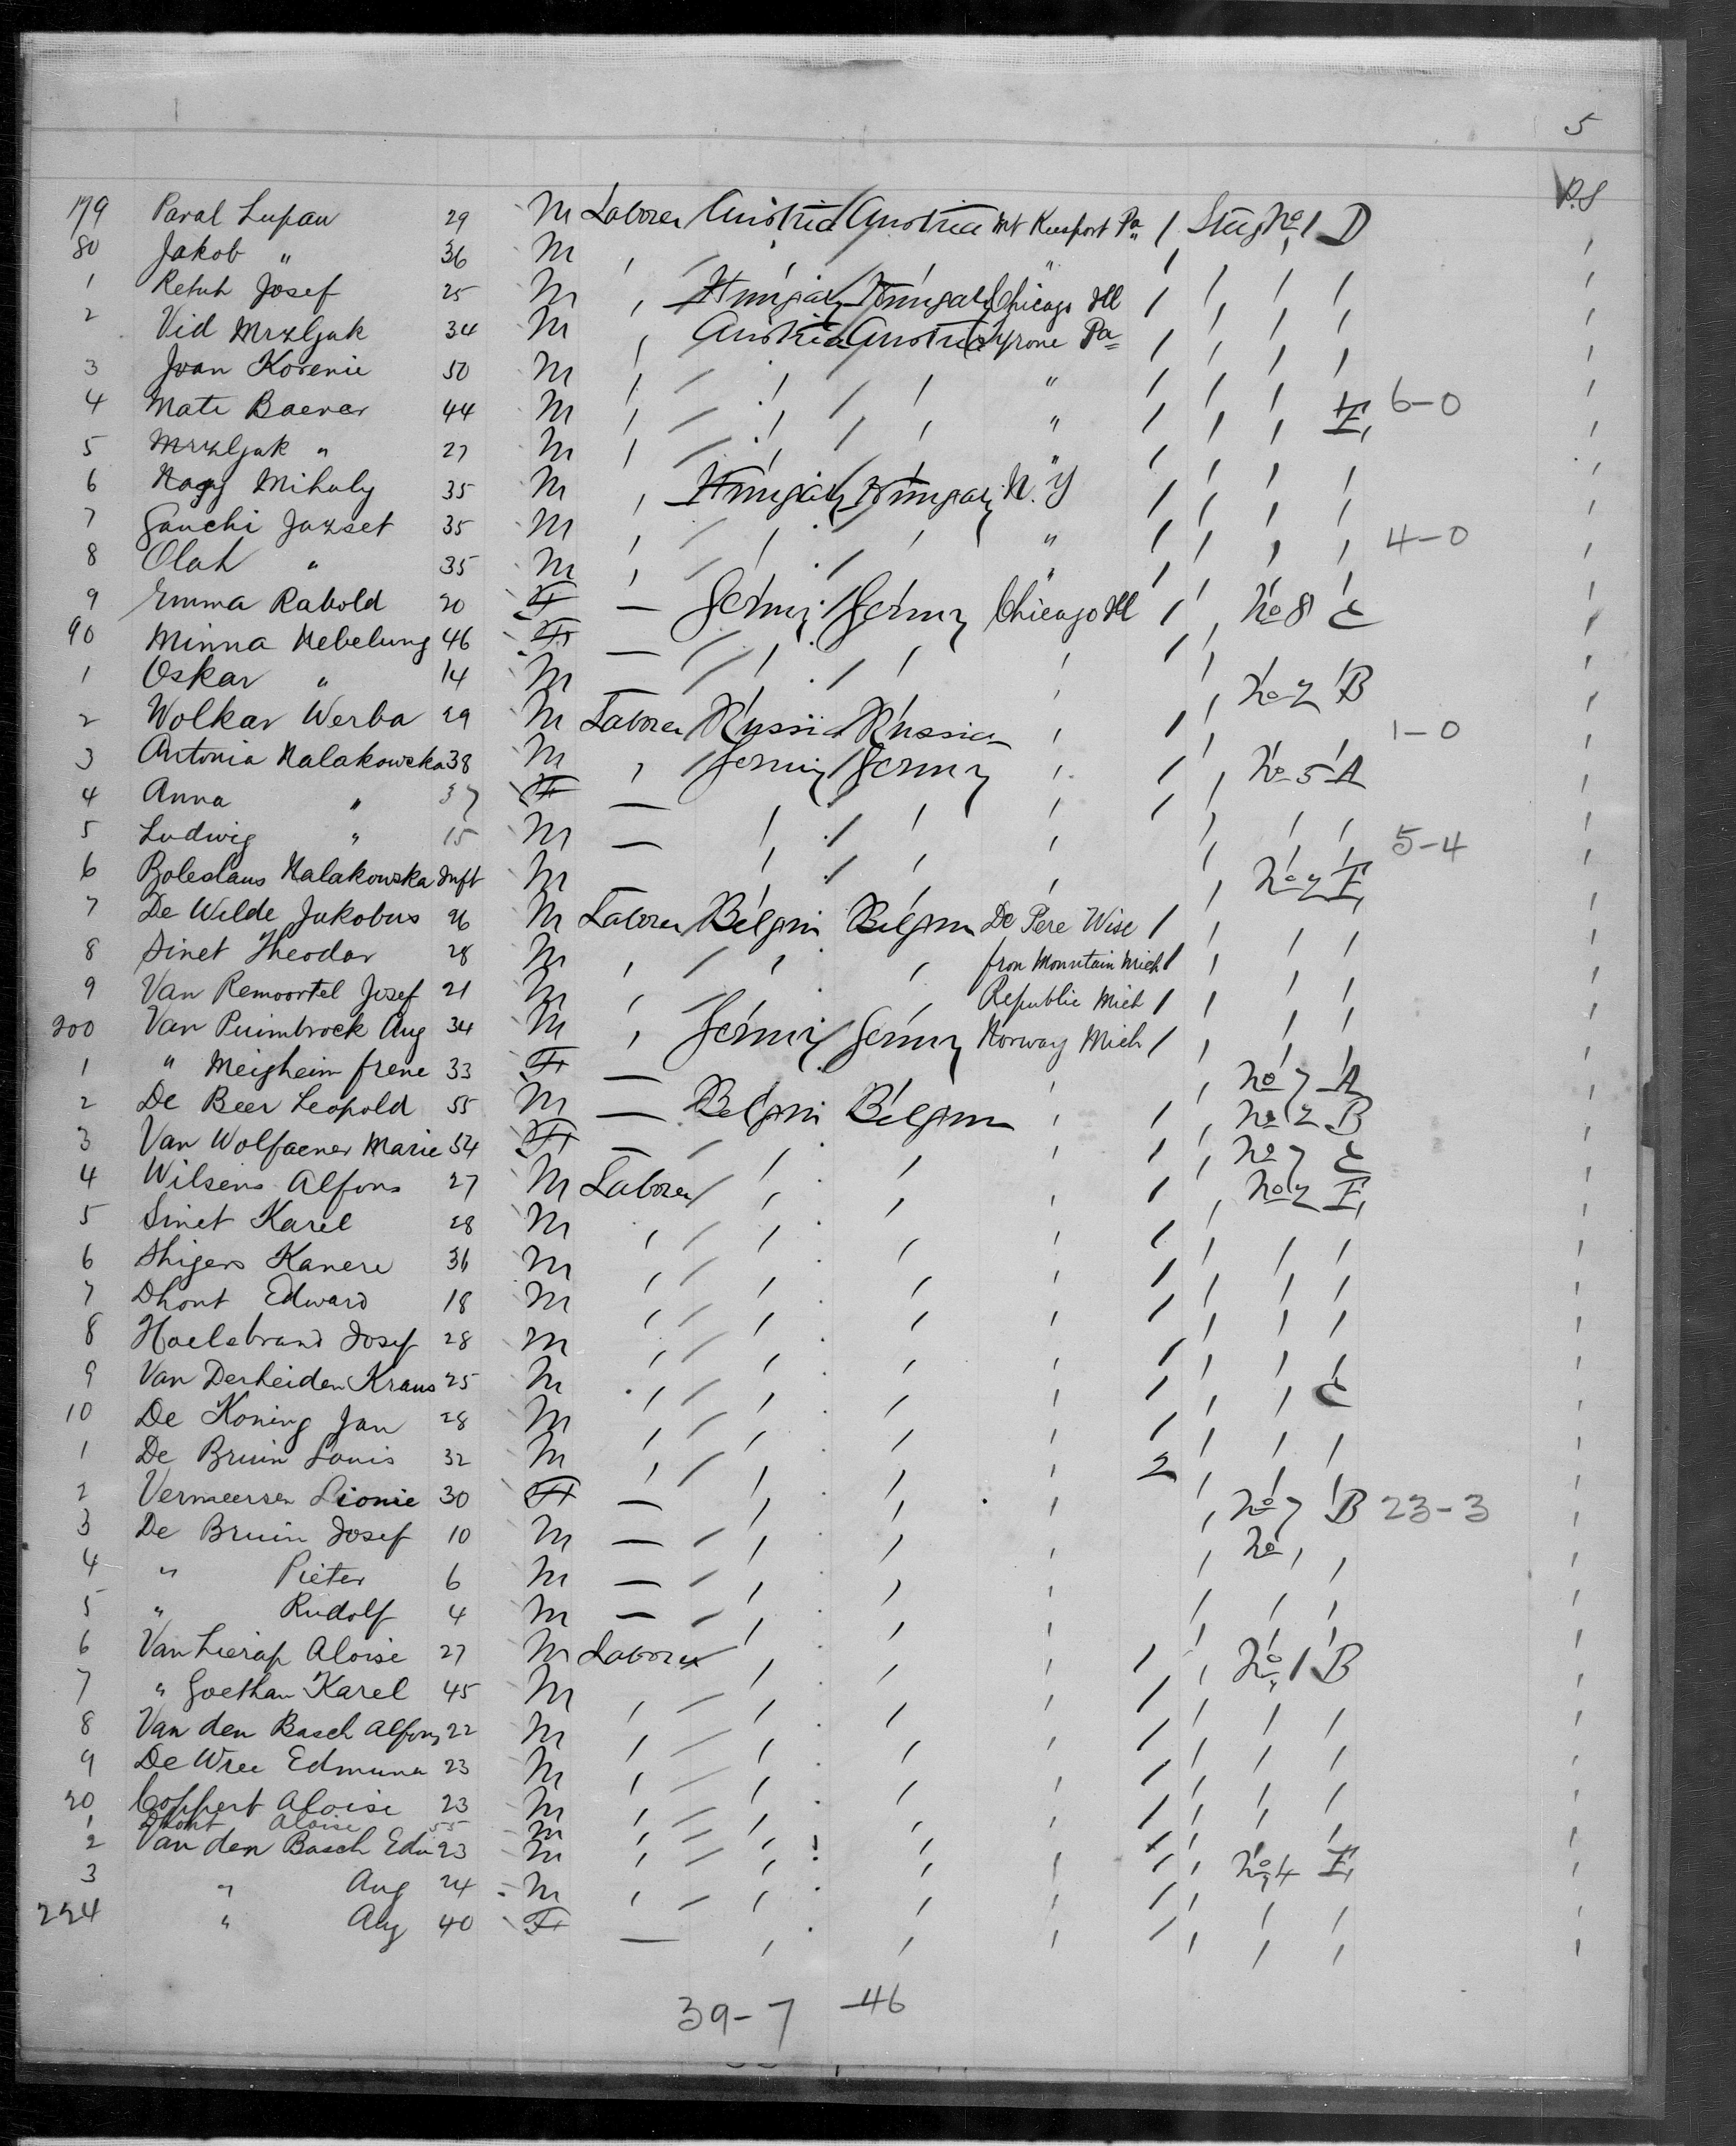 5
P.S
179 Paval Lupan 29 M Laborer Austria Austria Mt Keesport Pa 1 Steg No 1 D
80 Jakob " 36 M ' / ' ' " 1 ' ' '
1 Retuh Josef 25 M ' Hungary Hungary Chicago Ill 1 ' ' '
2 Vid Mrzljak 34 M ' Austria Austria Tyrone Pa 1 ' ' '
3 Jvan Korenie 50 M ' / ' / ' " 1 ' ' '
4 Mate Baenar 44 M ' / ' / ' " 1 ' ' E 6-0
5 Mrzljak " 27 M ' / ' / ' " 1 ' ' '
6 Nagy Mihaly 35 M ' Hungary Hungary N.Y 1 ' ' '
7 Gauchi Jozset 35 M ' / ' / ' " 1 ' ' ' 4-0
8 Olah " 35 M ' / ' / ' " 1 ' ' '
9 Emma Rabold 20 F — Germy Germy Chicago Ill 1 ' No 8 C
90 Minna Nebelung 46 F — / ' / ' ' 1 ' ' '
1 Oskar " 14 M — / ' / ' ' ' No 2 B
2 Wolkav Werba 29 M Laborer Russia Russia ' 1 ' ' ' 1-0
3 Antonia Kalakowska 38 M ' Germy Germy ' 1 ' No 5 A
4 Anna " 37 F — ' / ' ' 1 ' ' '
5 Ludwig " 15 M — ' / ' ' ' ' ' 5-4
6 Boleslaus Kalakowska Inft M — ' / ' ' ' No 2 E
7 De Wilde Jakobus 26 M Laborer Belgm Belgm De Pere Wisc 1 ' ' '
8 Sinet Theodor 28 M ' / ' ' Iron Mountain Mich 1 ' ' '
9 Van Remoortel Josef 21 M ' / ' ' Republic Mich 1 ' ' '
200 Van Puimbrock Aug 34 M ' Germy Germy Norway Mich 1 ' ' '
1 " Meigheim Irene 33 F — ' ' ' ' No 7 A
2 De Beer Leopold 55 M — Belgm Belgm ' 1 ' No 2 B
3 Van Wolfaener Marie 54 F — / ' ' ' 1 ' No 7 C
4 Wilsens Alfons 27 M Laborer / ' ' ' 1 ' No 2 E
5 Sinet Karel 28 M ' / ' ' ' 1 ' ' '
6 Shigers Kamere 36 M ' / ' ' ' 1 ' ' '
7 Dhont Edward 18 M ' / ' ' ' 1 ' ' '
8 Haelsbrand Josef 28 M ' / ' ' ' 1 ' ' '
9 Van Derheiden Kraus 25 M ' / ' ' ' 1 ' ' C
10 De Koning Jan 28 M ' / ' ' ' 1 ' ' '
1 De Bruin Louis 32 M ' / ' ' ' 2 ' ' '
2 Vermeersen Lionie 30 F — ' ' ' ' No 7 B 23-3
3 De Bruin Josef 10 M — / ' ' ' ' No 1 '
4 " Pieter 6 M — / ' ' ' ' ' '
5 " Rudolf 4 M — / ' ' ' ' ' '
6 Van Lierop Aloise 27 M Laborer ' ' ' 1 ' No 1 B
7 " Goethan Karel 45 M ' / ' ' ' 1 ' ' '
8 Van den Basch Alfons 22 M ' / ' ' ' 1 ' ' '
9 De Wree Edmund 23 M ' / ' ' ' 1 ' ' '
20 Coppert Aloise 23 M ' / ' ' ' 1 ' ' '
1 Dhont Aloise 55 M ' / ' ' ' 1 ' ' '
2 Van den Basch Edu 23 M ' / ' ' ' 1 ' No 4 E
3 " Aug 24 M ' / ' ' ' 1 ' ' '
224 " Aug 40 F — ' ' ' 1 ' ' '
39-7 46